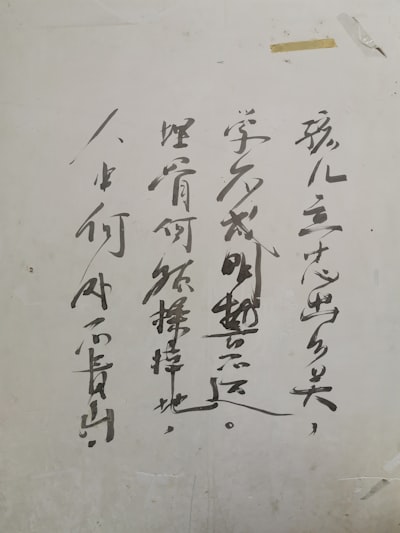 孩儿立志出乡关，
学不成明誓不还。
埋骨何须梓地，
人生何处不青山。